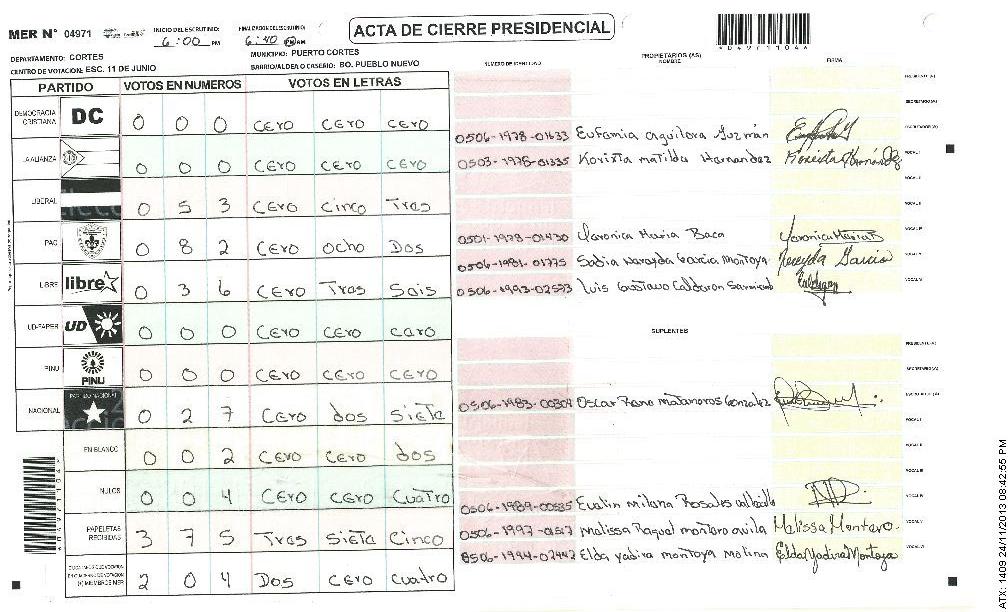 MER N° 04971
INICIO DEL ESCRUTINIO: 6:00 PM
FINALIZACION DEL ESCRUTINIO: 6:40 PM AM
ACTA DE CIERRE PRESIDENCIAL
*04971104*
DEPARTAMENTO: CORTES
MUNICIPIO: PUERTO CORTES
CENTRO DE VOTACION: ESC. 11 DE JUNIO
BARRIO/ALDEA O CASERIO: BO. PUEBLO NUEVO
NUMERO DE IDENTIDAD
PROPIETARIOS (AS)
NOMBRE
FIRMA
PARTIDO VOTOS EN NUMEROS VOTOS EN LETRAS
DEMOCRACIA CRISTIANA DC 0 0 0 CERO CERO CERO
LA ALIANZA 0 0 0 CERO CERO CERO
LIBERAL 0 5 3 CERO CINCO Tres
PAC 0 8 2 CERO OCHO Dos
LIBRE libre 0 3 6 CERO Tres Seis
UD-FAPER UD 0 0 0 CERO CERO cero
PINU PINU 0 0 0 CERO CERO CERO
NACIONAL PARTIDO NACIONAL 0 2 7 CERO dos Siete
EN BLANCO 0 0 2 CERO CERO dos
NULOS 0 0 4 CERO CERO Cuatro
PAPELETAS RECIBIDAS 3 7 5 Tres Siete Cinco
CIUDADANOS QUE VOTARON EN CUADERNO DE VOTACION (+) MIEMBROS MER 2 0 4 Dos CERO Cuatro
PRESIDENTE (A)
SECRETARIO (A)
0506-1978-01633 Eufamia Aguilera Guzmán ESCRUTADOR (A)
0503-1978-01335 Korixta Matilda Hernandez VOCAL I
VOCAL II
VOCAL III
0501-1978-01430 Veronica Maria Baca VOCAL IV
0506-1981-01775 Sadia Nereyda Garcia Montoya Nereyda Garcia VOCAL V
0506-1993-02593 Luis Gustavo Calderon VOCAL VI
SUPLENTES
PRESIDENTE (A)
SECRETARIO (A)
0506-1983-00304 Oscar Rene Matamoros Gonzalez ESCRUTADOR (A)
VOCAL I
VOCAL II
VOCAL III
0506-1989-00585 Evelin Milena Rosales VOCAL IV
Melissa Raquel Montero Avila Melissa Montero VOCAL V
0506-1994-02442 Elda Yadira Montoya Molina Elda Yadira Montoya VOCAL VI
*04971104*
ATX: 1409 24/11/2013 08:42:55 PM